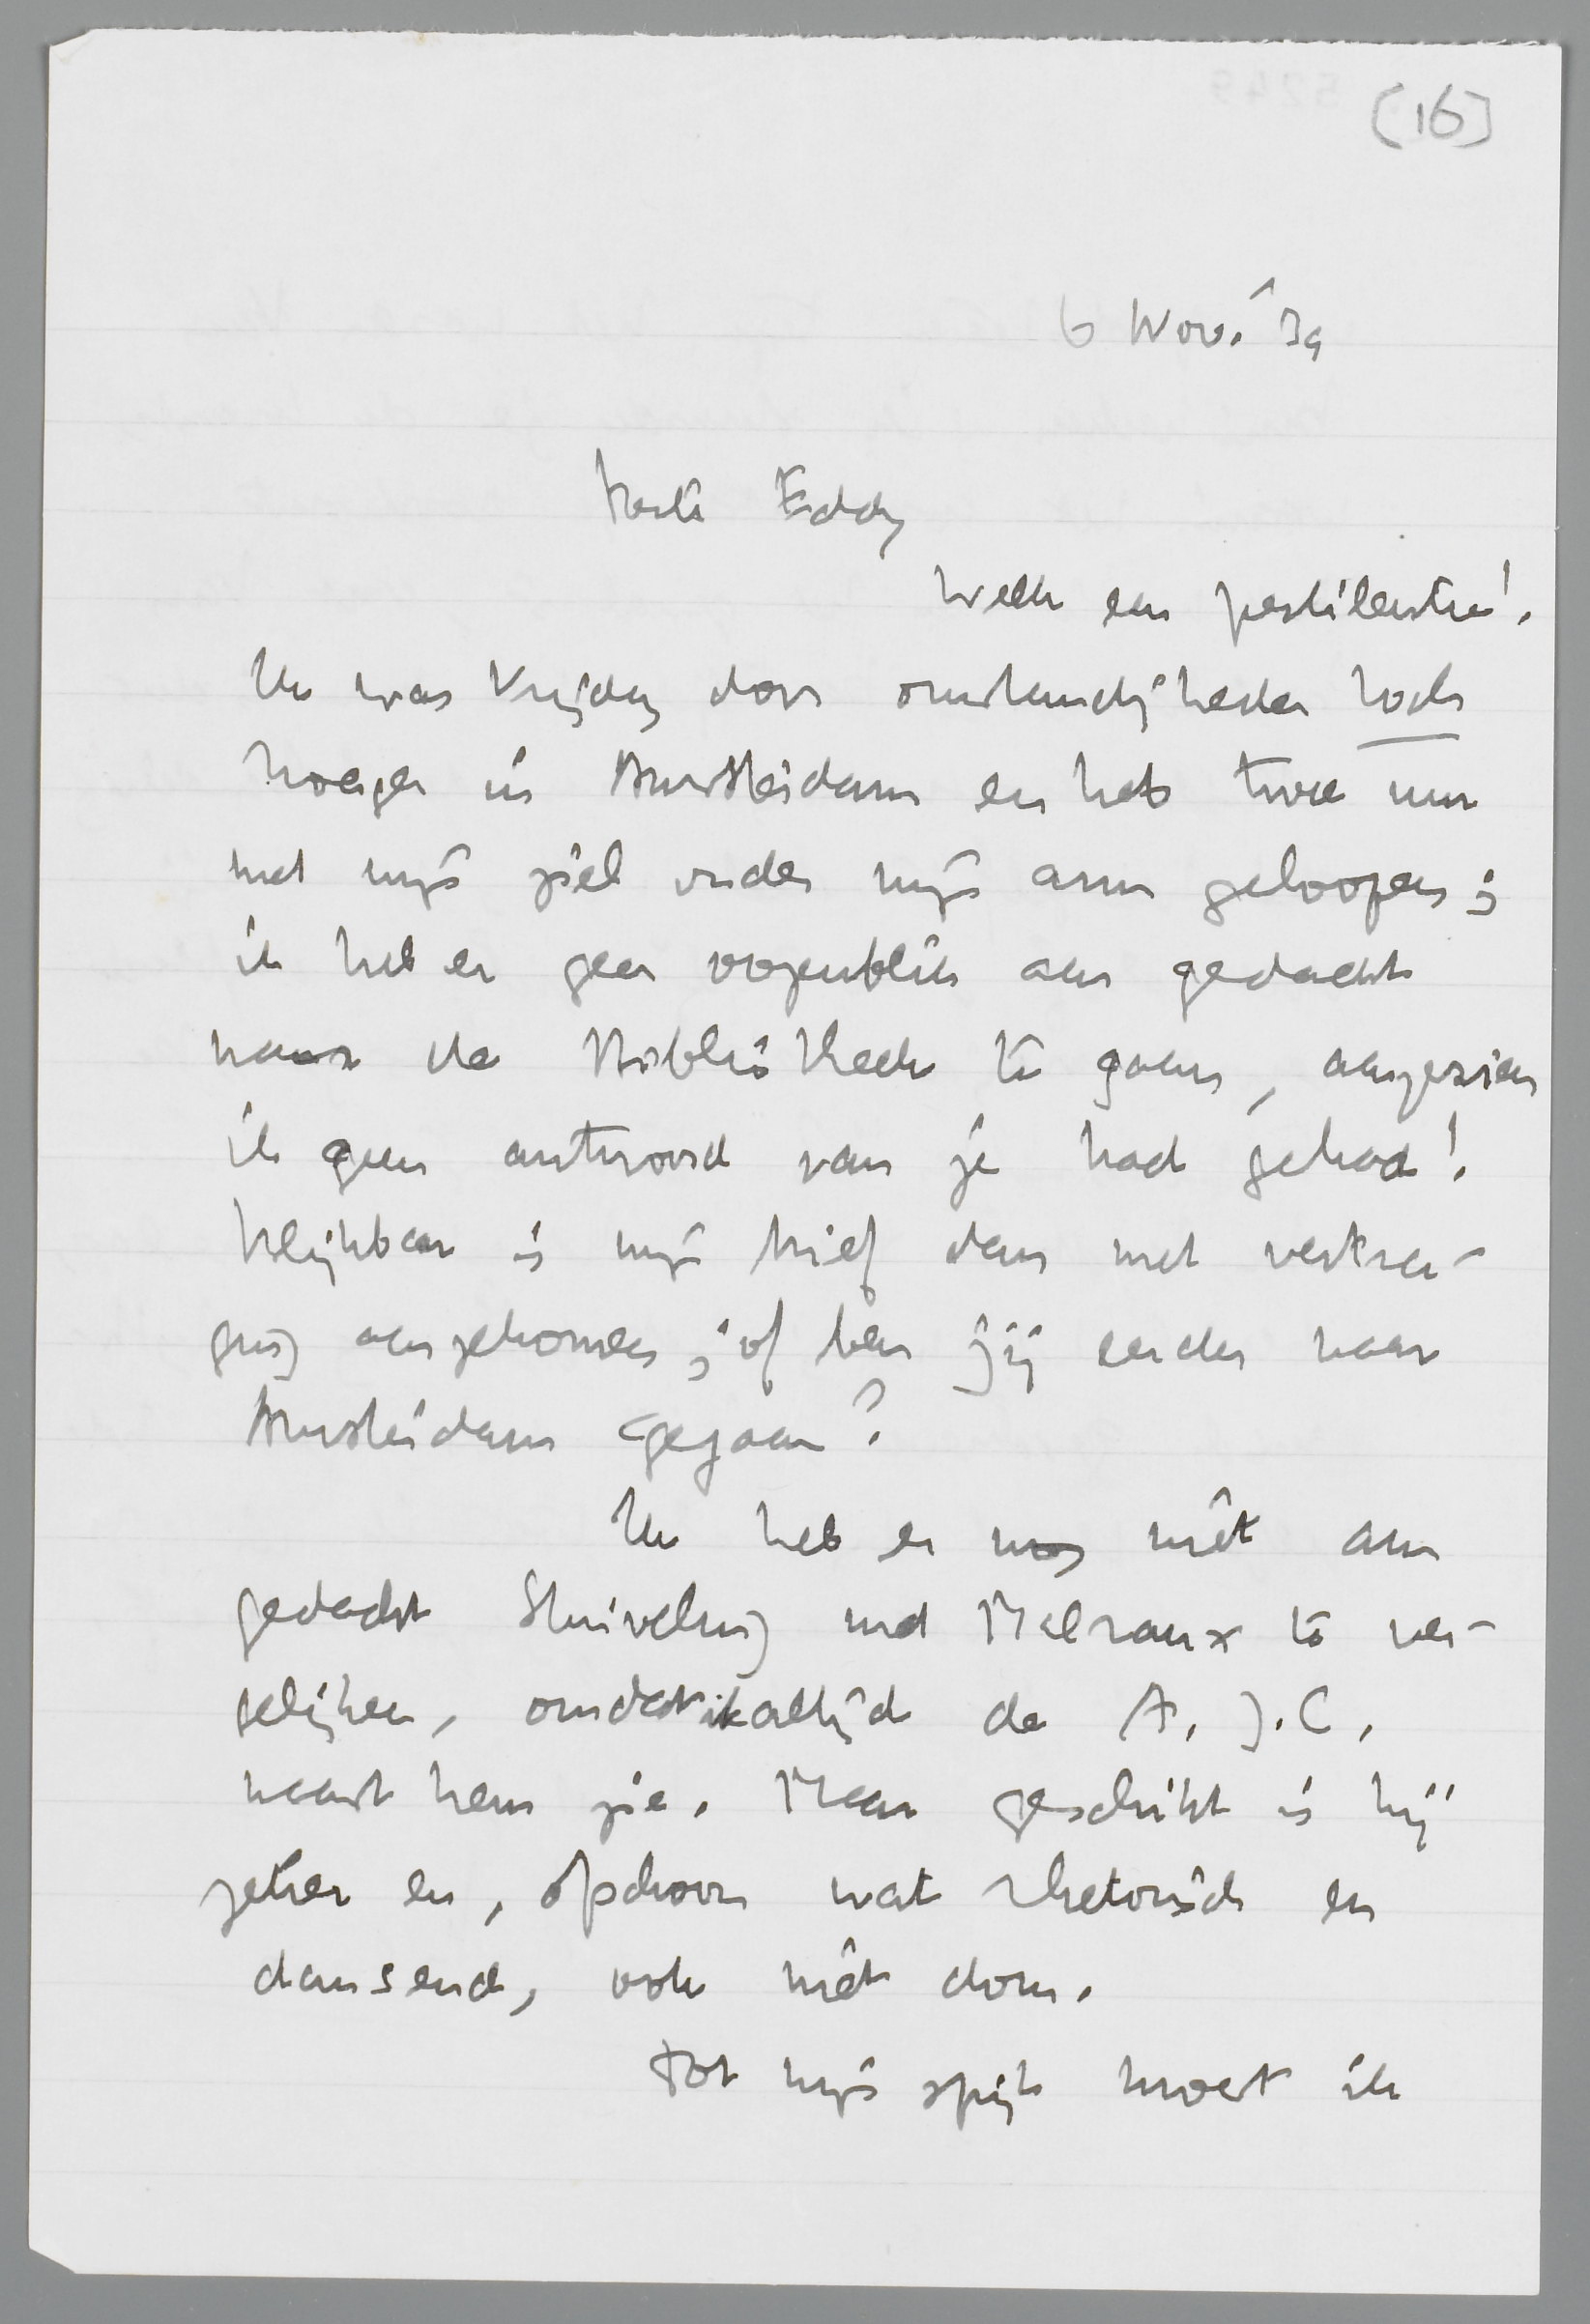 (16)
6 Nov. '39
Beste Eddy
Welk een pestilentie!
Ik was Vrijdag door omstandigheden toch
vroeger in Amsterdam en heb twee uur
met mijn ziel onder mijn arm geloopen;
ik heb er geen oogenblik aan gedacht
naar de Bibliotheek te gaan, aangezien
ik geen antwoord van je had gehad!
Blijkbaar is mijn brief dan met vertra-
ging aangekomen; of ben jij eerder naar
Amsterdam gegaan?
Ik heb er nog niet aan
gedacht Stuiveling met Malraux te ver-
gelijken, omdat ik altijd de A.J.C.
naast hem zie. Maar geschikt is hij
zeker en, ofschoon wat rhetorisch en
dansend, ook niet dom.
Tot mijn spijt moest ik